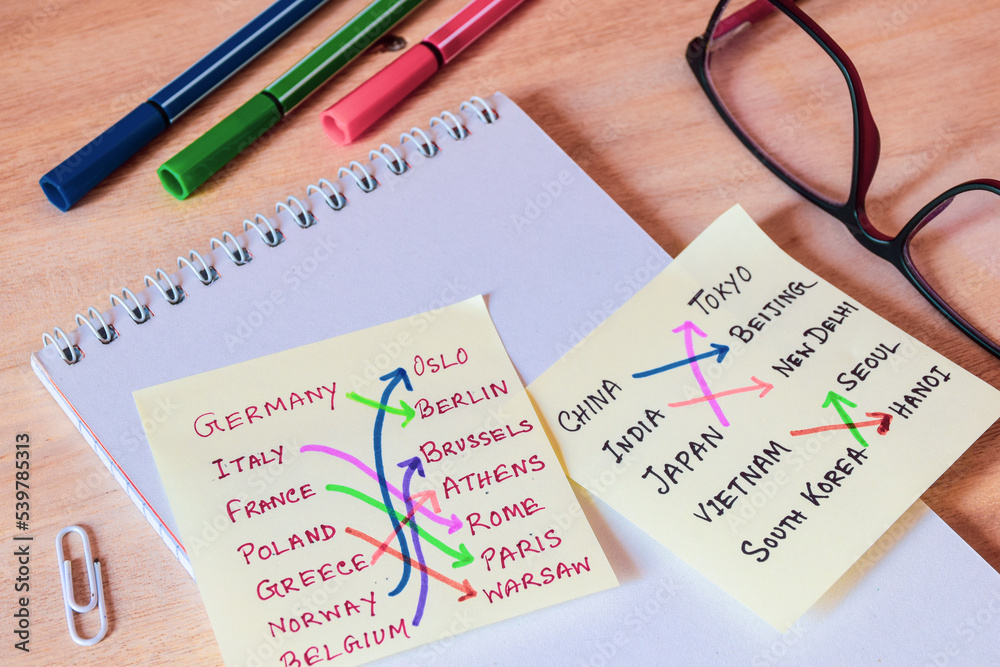 GERMANY
ITALY
FRANCE
POLAND
GREECE
NORWAY
BELGIUM
OSLO
BERLIN
BRUSSELS
ATHENS
ROME
PARIS
WARSAW
CHINA
INDIA
JAPAN
VIETNAM
SOUTH KOREA
TOKYO
BEIJING
NEW DELHI
SEOUL
HANOI
Adobe Stock | #539785313